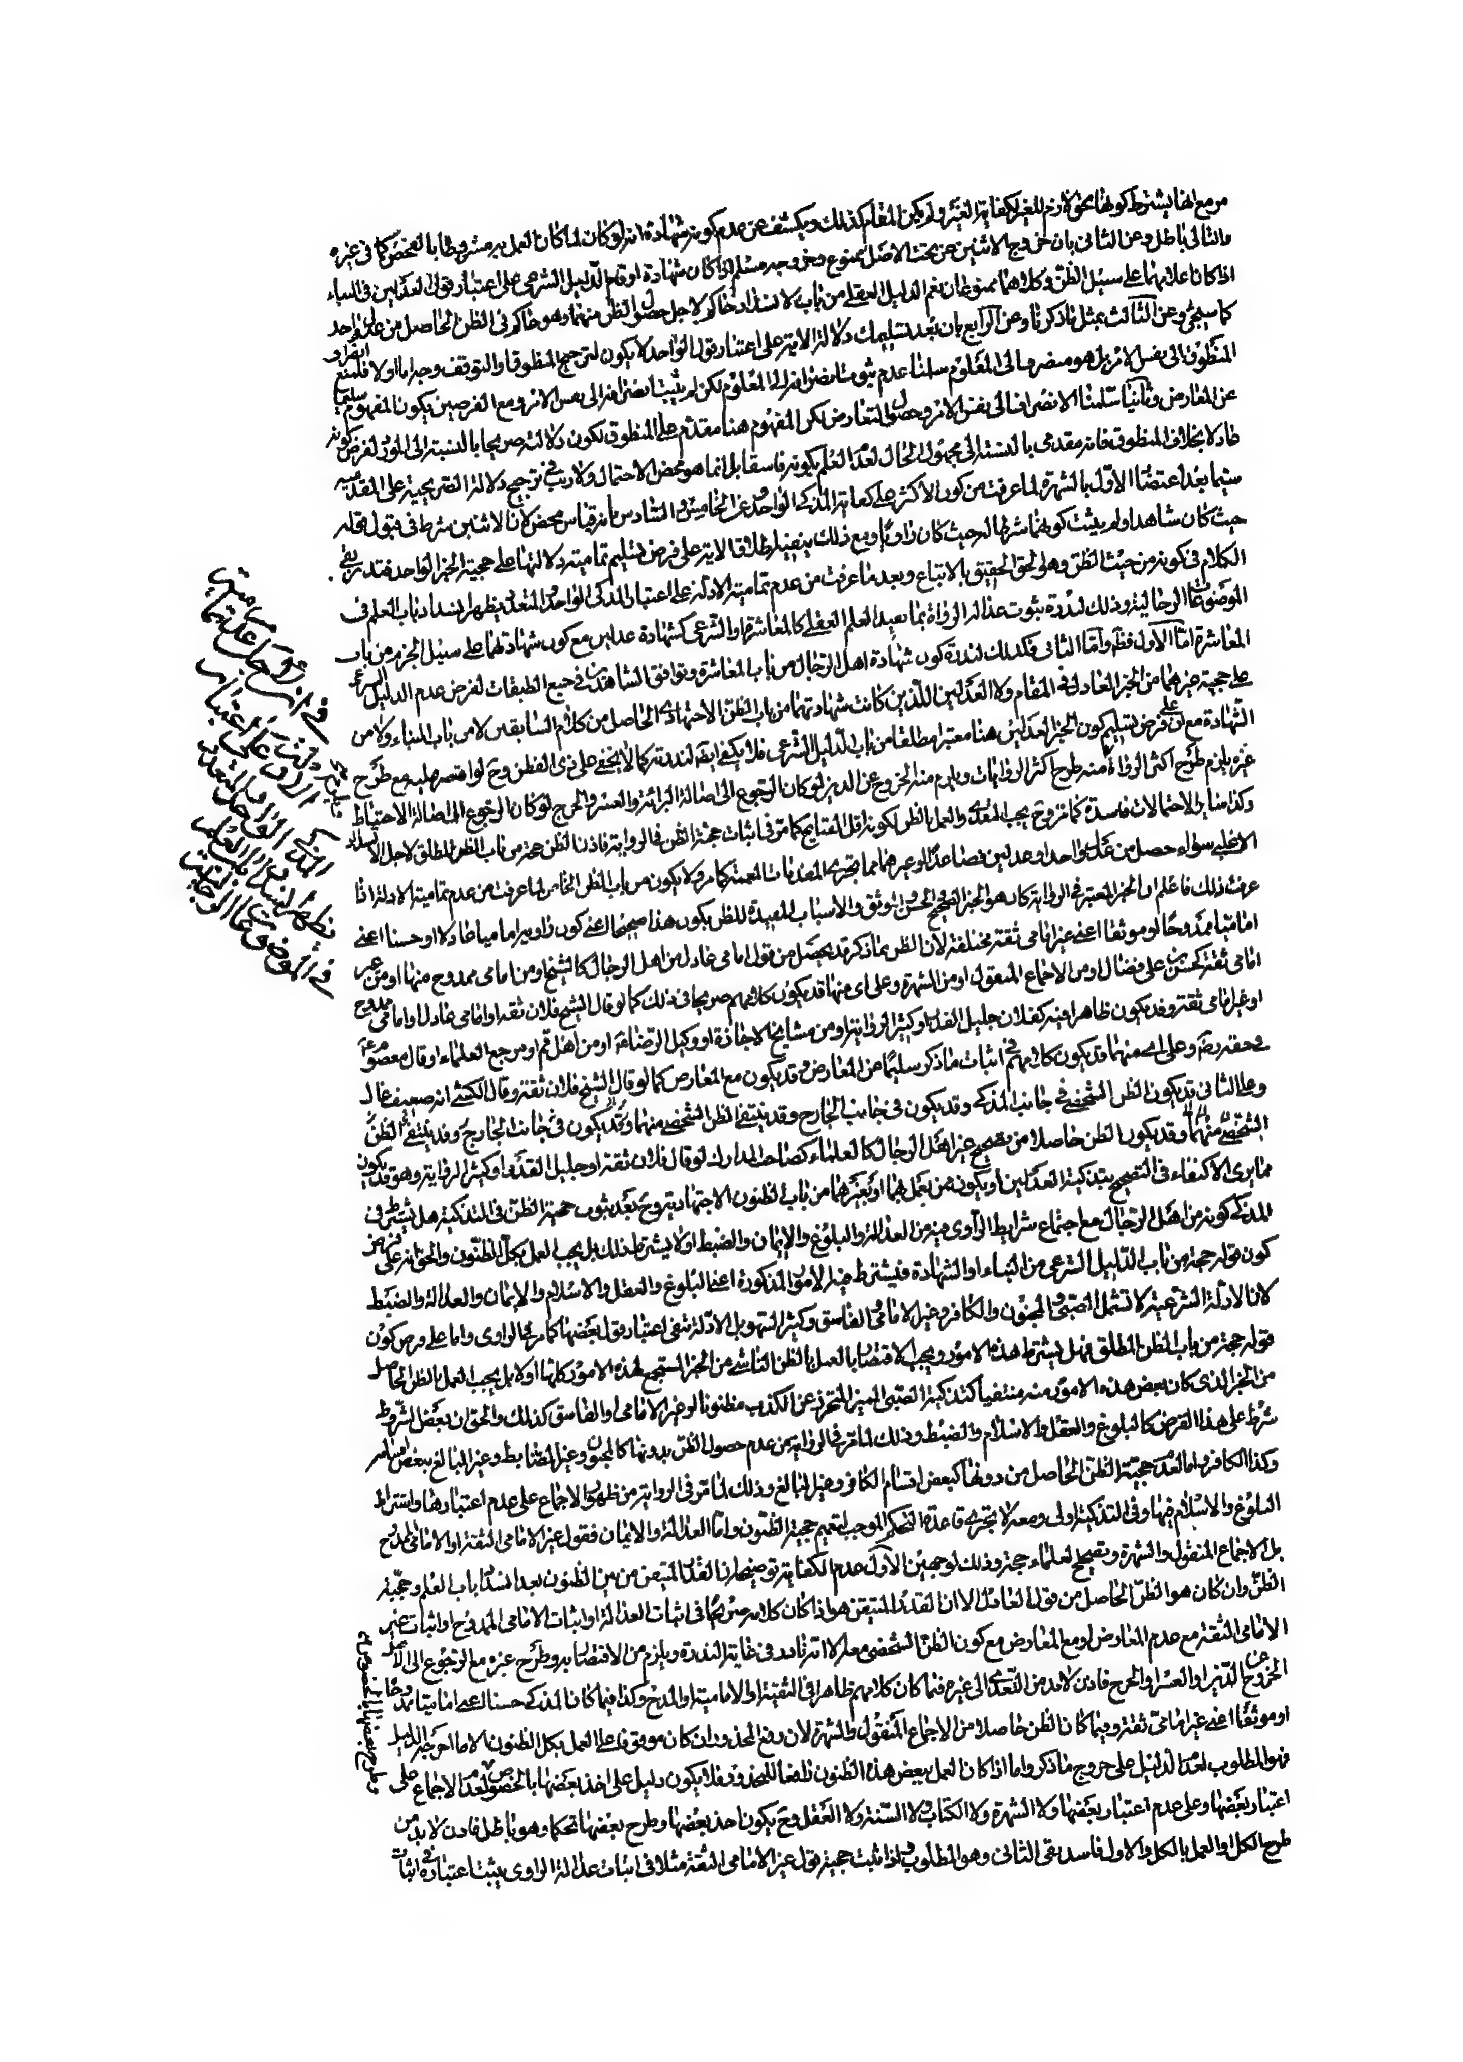 مر مع انها يشترط كونها بحق لازم للغير لكفاية الغير ولم يكن المقام كذلك ويكشف عن عدم كونه شهادة انه لو كان لما كان العمل به مشروطا بالفحص كما في غيره
والتالي باطل وعن الثاني بان خروج الاثنين عن تحت الاصل ممنوع وخروجه مسلم اذا كان شهادة او قام الدليل الشرعي على اعتبار قول العدلين في البناء
اذا كانا علا بهما على سبيل الظن وكلاهما ممنوعان نعم الدليل العقلي من باب الانسداد حاكم لاجل حصول الظن منهما وهو حاكم في الظن الحاصل من عدل واحد
كما سيجئ وعن الثالث بمثل ما ذكرنا وعن الرابع بان بعد تسليمك دلالة الاية على اعتبار قول الواحد لا يكون لترجيح المنطوق او التوقف وجه اما اولا فلمنع انصراف
المنطوق الى نفس الامر بل هو منصرف الى المعلوم سلمنا عدم ثبوت انصرافه الى المعلوم لكن لم يثبت انصرافه الى نفس الامر ومع الفرضين يكون المفهوم سليما
عن المعارض وثانيا سلمنا الانصراف الى نفس الامر وحصول التعارض لكن المفهوم هنا مقدم على المنطوق لكون دلالته صريحا بالنسبة الى المورد لفرض كونه
عادلا بخلاف المنطوق فانه مقدمي بالنسبة الى مجهول الحال لعدم العلم بكونه فاسقا بل انما هو محض الاحتمال ولا ريب في ترجيح دلالة الصريحية على المقدمية
سيما بعد اعتضاد الاول بالشهرة لما عرفت من كون الاكثر على كفاية المذكي الواحد وعن الخامس والسادس بانه قياس محض لان الاثنين شرط في قبول قوله
حيث كان شاهدا ولم يثبت كونهما شرطا له حيث كان راويا ومع ذلك ينفيه اطلاق الاية على فرض تسليم تمامية دلالتها على حجية الخبر الواحد فتدبر بقي
الكلام في كونه من حيث الظن وهو الحق الحقيق بالاتباع وبعد ما عرفت من عدم تمامية الادلة على اعتبار المذكي الواحد والمتعدد يظهر انسداد باب العلم في
الموضوعات الرجالية وذلك لندرة ثبوت عدالة الرواة بما يفيد العلم العقلي كالمعاشرة او الشرعي كشهادة عدلين مع كون شهادتهما على سبيل الجزم من باب
المعاشرة اما الاول فظ واما الثاني فكذلك لندرة كون شهادة اهل الرجال من باب المعاشرة وتوافق الشاهدين في جميع الطبقات لفرض عدم الدليل الشرعي
على حجية غيرهما من الخبر العادل في المقام ولا العدلين اللذين كانت شهادتهما من باب الظن الاجتهادي الحاصل من كلام السابقين لا من باب البناء ولا من
الشهادة مع ان على فرض تسليم كون الخبر العدلين هنا معتبرا مطلقا من باب الدليل الشرعي فلا يكفي ايضا لندرته كما لا يخفى على ذي الفطن وح لو اقتصر عليه مع طرح
غيره يلزم طرح اكثر الرواة منه طرح اكثر الروايات ويلزم منه الخروج عن الدين لو كان الرجوع الى اصالة البرائة والعسر والحرج لو كان الرجوع الى اصالة الاحتياط
وكذا سائر الاحتمالات فاسدة كما مر وح يجب التعدي والعمل بالظن لكونه اقل قبايح كما مر في اثبات حجية الظن في الرواية فاذن الظن حجة من باب الظن المطلق لاجل الانسداد
الاغلبي سواء حصل من عدل واحد او عدلين فصاعدا او غيرهما مما يجري المقدمات المعممة كما مر ولا يكون من باب الظن الخاص لما عرفت من عدم تمامية الادلة اذا
عرفت ذلك فاعلم ان الخبر المعتبر في الرواية كان هو الخبر الصحيح والحسن والموثق والاسباب المفيدة للظن بكون هذا صحيحا اعني كون راويه اماميا عادلا او حسنا اعني
اماميا ممدوحا او موثقا اعني غير امامي ثقة مختلفة لان الظن بما ذكر قد يحصل من قول امامي عادل من اهل الرجال كالشيخ او من امامي ممدوح منها او من غير
امامي ثقة كحسن بن علي فضال او من الاجماع المنقول او من الشهرة وعلى اي منها قد يكون كلامهم صريحا في ذلك كما لو قال الشيخ فلان ثقة او امامي عادل او امامي ممدوح
او غير امامي ثقة وقد يكون ظاهرا فيه كفلان جليل القدر او كثير الرواية او من مشايخ الاجازة او وكيل الرضا ع او من اهل قم او مرجع العلماء او قال معصوم ع
في حقه رض وعلى اي منهما قد يكون كلامهم في اثبات ما ذكر سليما من المعارض وقد يكون مع المعارض كما لو قال الشيخ فلان ثقة وقال الكشي انه ضعيف غال
وعلى الثاني قد يكون الظن الشخصي في جانب المذكي وقد يكون في جانب الجارح وقد ينتفي الظن الشخصي منهما وقد يكون في جانب الجارح وقد ينتفي الظن
الشخصي منهما وقد يكون الظن حاصلا من تصحيح غير اهل الرجال كالعلماء كصاحب المدارك لو قال فلان ثقة او جليل القدر او كثير الرواية وهو قد يكون
مما يرى الاكتفاء في التصحيح بتذكية العدلين او يكون ممن يعمل بهما او بغيرهما من باب الظنون الاجتهادية وح بعد ثبوت حجية الظن في التذكية هل يشترط في
المذكي كونه من اهل الرجال مع اجتماع شرايط الراوي فيه من العدالة والبلوغ والايمان والضبط او لا يشترط ذلك بل يجب العمل بكل الظنون والحق انه على فرض
كون قوله حجة من باب الدليل الشرعي من النباء او الشهادة فيشترط فيه الامور المذكورة اعني البلوغ والعقل والاسلام والايمان والعدالة والضبط
لان الادلة الشرعية لا تشمل الصبي والمجنون والكافر وغير الامامي والفاسق وكثير السهو بل الادلة تنفي اعتبار قول بعضها كما مر في الراوي واما على فرض كون
قوله حجة من باب الظن المطلق فهل يشترط هذه الامور ويجب الاقتصار بالعمل بالظن الناشي من الخبر المستجمع لهذه الامور كلها او لا بل يجب العمل بالظن الحاصل
من الخبر الذي كان بعض هذه الامور منه منتفيا كتذكية الصبي المميز المتحرز عن الكذب مظنونا او غير الامامي او الفاسق كذلك والحق ان بعض الشروط
شرط على هذا الفرض كالبلوغ والعقل والاسلام والضبط وذلك لما مر في الرواية من عدم حصول الظن بدونها كالمجنون وغير الضابط وغير البالغ ببعض اقسامه
وكذا الكافر واما لعدم حجية الظن الحاصل من دونها كبعض اقسام الكافر وغير البالغ وذلك لما مر في الرواية من ظهور الاجماع على عدم اعتبارها واشتراط
البلوغ والاسلام فيها وفي التذكية اولى ومعه لا يجري قاعدة التحكم الموجب لتعميم حجية الظنون واما العدالة والايمان فقول غير الامامي الثقة او الامامي الممدوح
بل الاجماع المنقول والشهرة وتصحيح العلماء حجة وذلك لوجهين الاول عدم الكفاية توضيحه ان القدر المتيقن من بين الظنون بعد انسداد باب العلم وحجية
الظن وان كان هو الظن الحاصل من قول العادل الا ان القدر المتيقن هو اذا كان كلامه صريحا في اثبات العدالة او اثبات الامامي الممدوح او اثبات غير
الامامي الثقة مع عدم المعارض او مع المعارض مع كون الظن الشخصي معه الا انه نادر في غاية الندرة ويلزم من الاقتصار به وطرح غيره مع الرجوع الى الاصل
الخروج عن الدين او العسر والحرج فاذن لا بد من التعدي الى غيره فيما كان كلامهم ظاهرا في الثقة او الامامية او المدح وكذا فيما كان المذكي حسنا اعني اماميا ممدوحا
او موثقا اعني غير امامي ثقة وفيما كان الظن حاصلا من الاجماع المنقول والشهرة لان رفع المحذور ان كان موقوفا على العمل بكل الظنون الا ما اخرجه الدليل
فهو المطلوب لعدم الدليل على خروج ما ذكر واما اذا كان العمل ببعض هذه الظنون دافعا للمحذور فلا يكون دليل على اخذ بعضها بالخصوص لعدم الاجماع على
اعتبار بعضها وعلى عدم اعتبار بعضها ولا الشهرة ولا الكتاب ولا السنة ولا العقل وح يكون اخذ بعضها وطرح بعضها تحكما وهو باطل فاذن لا بد من
طرح الكل او العمل بالكل والاول فاسد بقي الثاني وهو المطلوب واذا ثبت حجية قول غير الامامي الثقة مثلا في اثبات عدالة الراوي يثبت اعتباره في اثبات
في انه
الادلة على اعتبار
المذكي الواحد والمتعدد
يظهر انسداد باب العلم
في الموضوعات الرجالية
وطرح بعضها بالخصوص